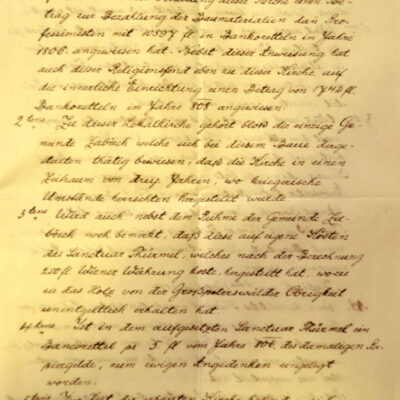 dieser Kirche einen Be-
trag zur Bezahlung der Baumaterialien dan Pro-
fessionisten mit 10597 fl. in Bankozetteln im Jahre
1806. angewiesen hat. Nebst dieser Anweisung hat
auch dieser Religionsfond eben zu dieser Kirche auf
die innerliche Einrichtung einen Betrag von 1742 fl.
Bankozetteln im Jahre 808 angewiesen
2tens Zu dieser Lokalkirche gehört bloß die einzige Ge-
meinde welche sich bei diesem Baue derge-
stalten thätig bewiesen, daß die Kirche in einen
Zeitraum von drey Jahren, wo kriegerische
Umstände herrschten hergestellt wurde
3tens Wird auch nebst dem Ruhme der Gemeinde
noch bemerkt, daß diese auf eigene Kosten
das Sanctuar Thürmel, welches nach der Berechnung
250 fl Wiener Währung kostet, hergestellt hat, wozu
sie das Holz von der Großpeterswälder Obrigkeit
unentgeltlich erhalten hat
4tens Ist in dem aufgesetzten Sanctuar Thürmel ein
Bancozettel pr 5 fl vom Jahre 806. des damaligen Pa-
piergelde, zum ewigen Angedenken eingelegt
worden.
5tens Zur Zeit der Kirche